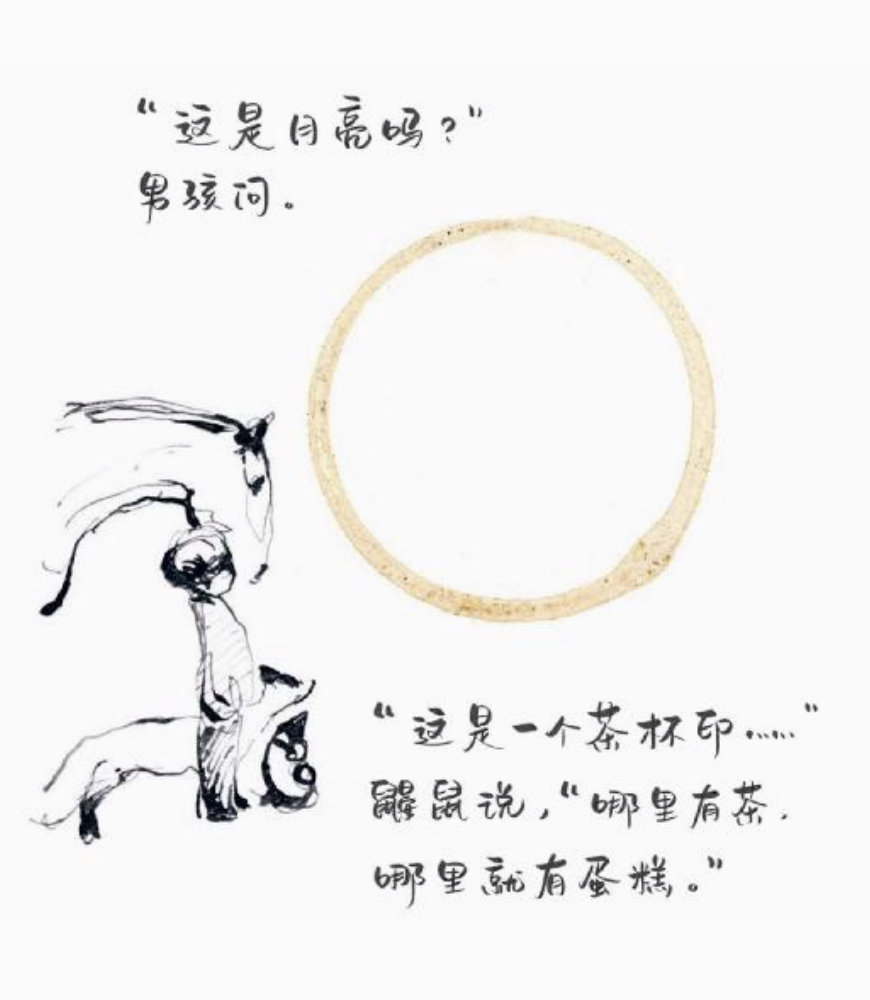 “这是月亮吗?”
男孩问。
“这是一个茶杯印……”
鼹鼠说,“哪里有茶,
哪里就有蛋糕。”